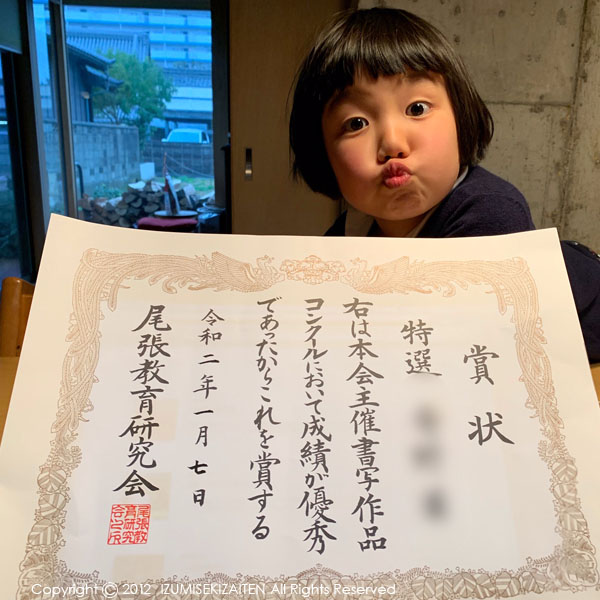 賞状
特選
右は本会主催書写作品
コンクールにおいて成績が優秀
であったからこれを賞する
令和二年一月七日
尾張教育研究会
尾張教
育研究
会之印
Copyright © 2012 IZUMISEKIZAITEN All Rights Reserved